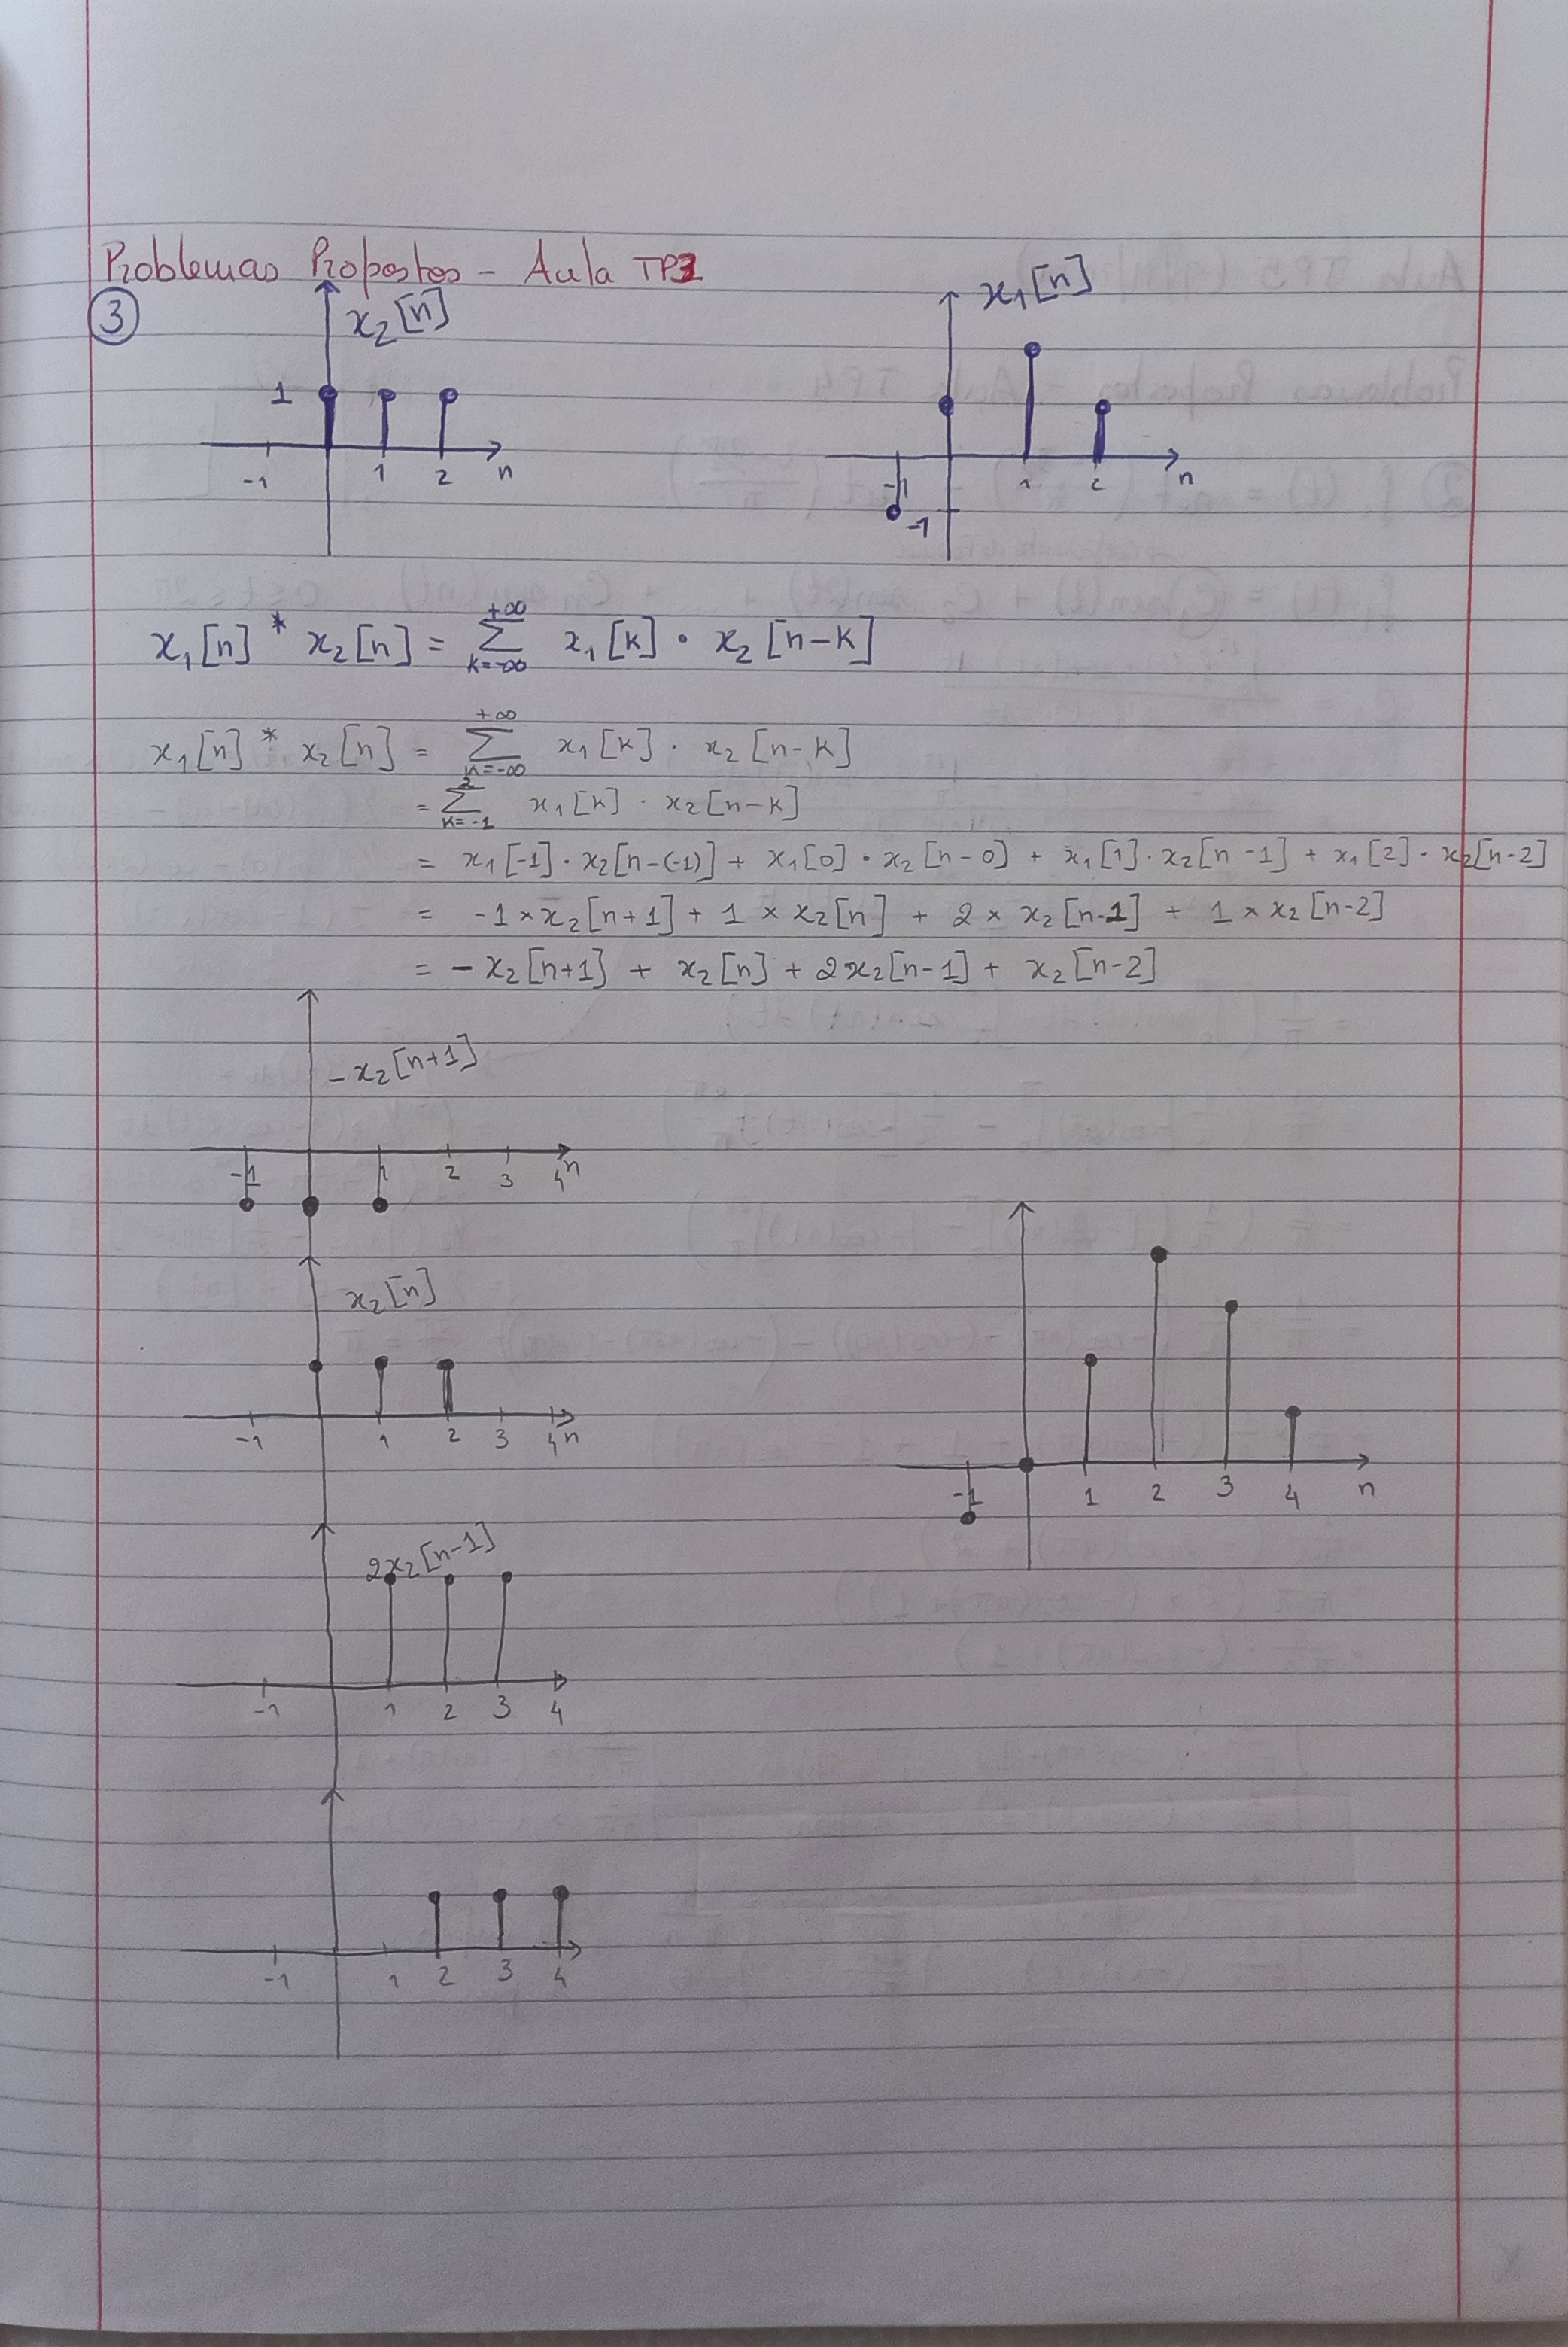 Problemas Propostos - Aula TP3
③
x₂[n]
1
-1 1 2 n
x₁[n]
-1 1 2 n
-1
x₁[n] * x₂[n] = +∞ Σ k=-∞ x₁[k] · x₂[n-k]
x₁[n] * x₂[n] = +∞ Σ k=-∞ x₁[k] · x₂[n-k]
= 2 Σ k=-1 x₁[k] · x₂[n-k]
= x₁[-1] · x₂[n-(-1)] + x₁[0] · x₂[n-0] + x₁[1] · x₂[n-1] + x₁[2] · x₂[n-2]
= -1 × x₂[n+1] + 1 × x₂[n] + 2 × x₂[n-1] + 1 × x₂[n-2]
= - x₂[n+1] + x₂[n] + 2x₂[n-1] + x₂[n-2]
-x₂[n+1]
-1 1 2 3 4 n
x₂[n]
-1 1 2 3 4 n
-1 1 2 3 4 n
2x₂[n-1]
-1 1 2 3 4
-1 1 2 3 4